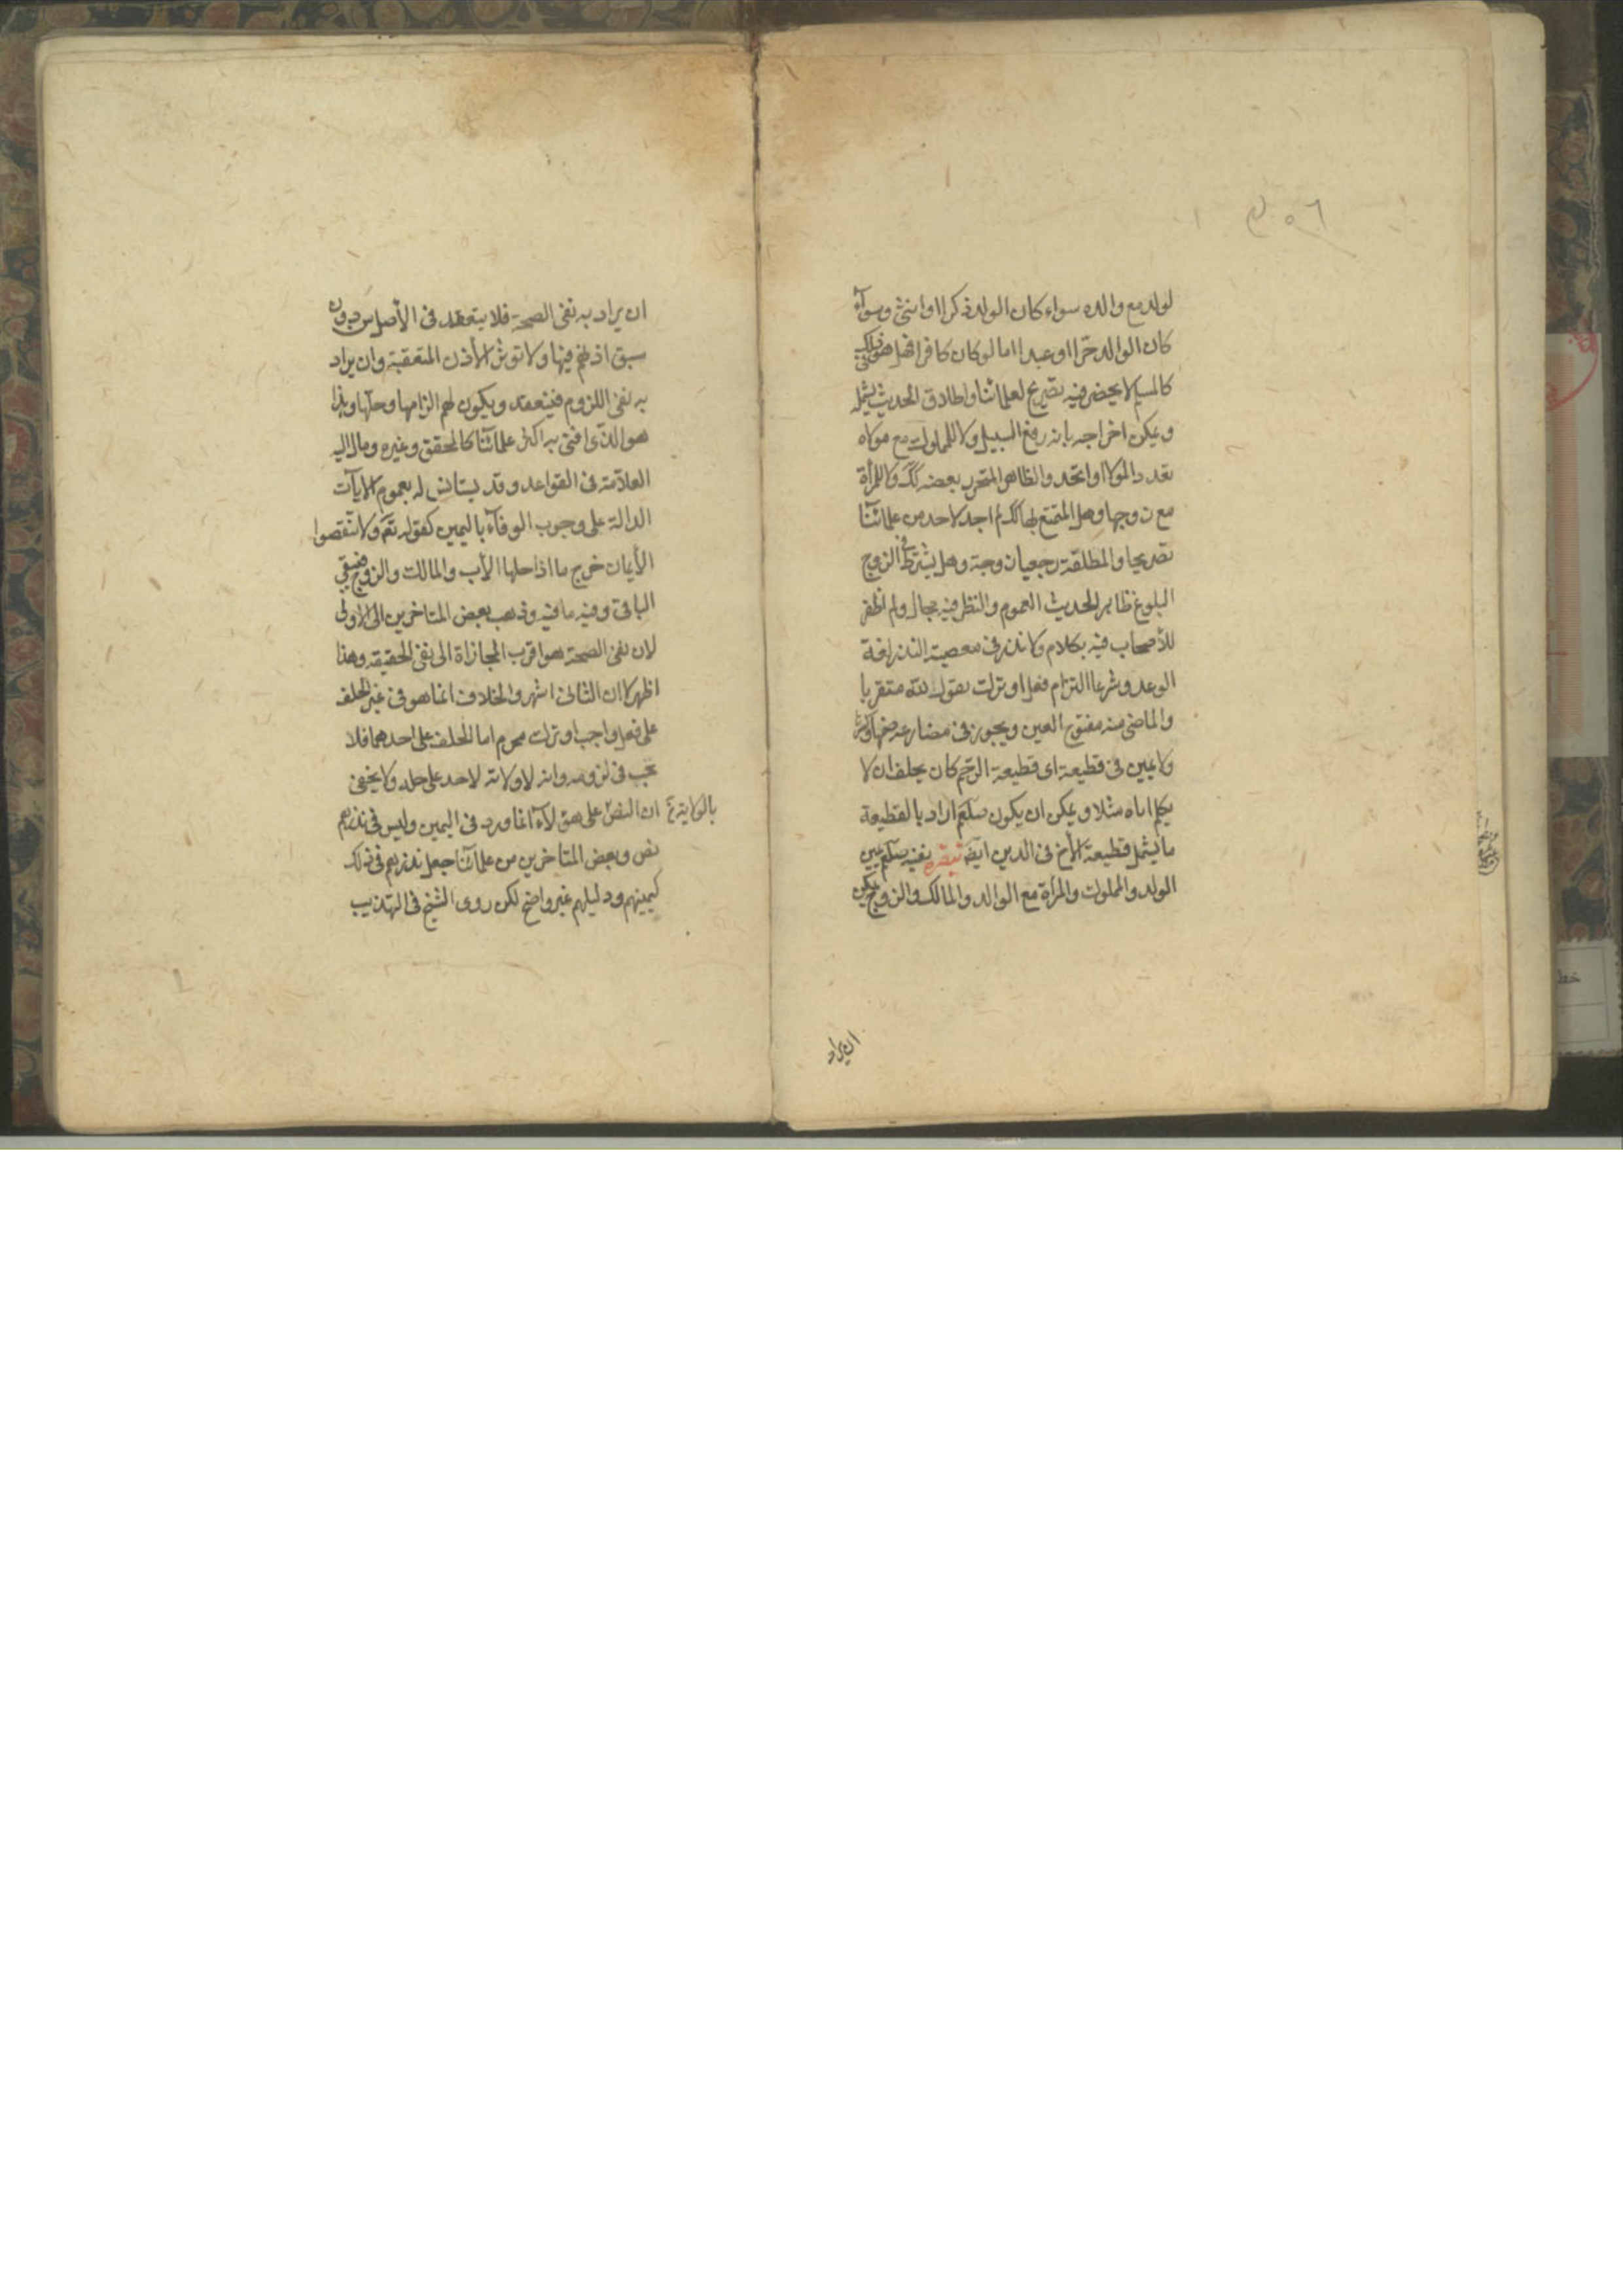 لولد مع والده سواء كان الولد ذكرا او انثى وسوآء
كان الوالد حرّا او عبدا اما لو كان كافرا فهل هو فى ذلك
كالمسلم لا يحضرنى فيه تصريح لعلمائنا واطلاق الحديث يشمله
ويمكن اخراجه بانه رفع السبيل ولا للمملوك مع مولاه
تعدد المولى او اتحد والظاهر المتحرر بعضه كك ولا للمرأة
مع زوجها وهل المتمتع بها كك لم اجد لاحد من علمائنا
تصريحا والمطلقة رجعيا زوجة وهل يشترط فى الزوج
البلوغ ظاهر الحديث العموم والنظر فيه مجال ولم اظفر
للأصحاب فيه بكلام ولا نذر فى معصية النذر لغة
الوعد وشرعا التزام فعل او ترك بقول لله متقربا
والماضى منه مفتوح العين ويجوز فى مضارعه ضمها وكسرها
ولا يمين فى قطيعة اى قطيعة الرّحم كان يحلف ان لا
يكلم اباه مثلا ويمكن ان يكون صلعم اراد بالقطيعة
ما يشمل قطيعة الأخ فى الدين ايضا تبصره نفيه صلعم يمين
الولد والمملوك والمرأة مع الوالد والمالك والزوج يمكن
ان يراد
ان يراد به نفى الصحة فلا ينعقد فى الأصل من دون
سبق اذنهم فيها ولا تؤثر الأذن المتعقبة وان يراد
به نفى اللزوم فينعقد ويكون لهم الزامها وحلها وهذا
هو الّذى افتى به اكثر علمائنا كالمحقق وغيره ومال اليه
العلاّمة فى القواعد وقد يستانس له بعموم الايآت
الدالة على وجوب الوفآء باليمين كقوله تعَ ولا تنقضوا
الأيمان خرج ما اذا حلها الأب والمالك والزوج فيبقى
الباقى وفيه ما فيه وذهب بعض المتاخرين الى الاولى
لان نفى الصحة هو اقرب المجازاة الى نفى الحقيقة وهذا
اظهر الا ان الثانى اشهر والخلاف انما هو فى غير الحلف
على فعل واجب او ترك محرم اما الحلف على احدهما فلا
يجب فى لزومه وانه لا ولاية لاحد على حله ولا يخفى
ان النصّ على هؤلاء انما ورد فى اليمين وليس فى نذرهم
نص وبعض المتاخرين من علمائنا جعل نذرهم فى ذلك
كيمينهم ودليلهم غير واضح لكن روى الشيخ فى التهذيب